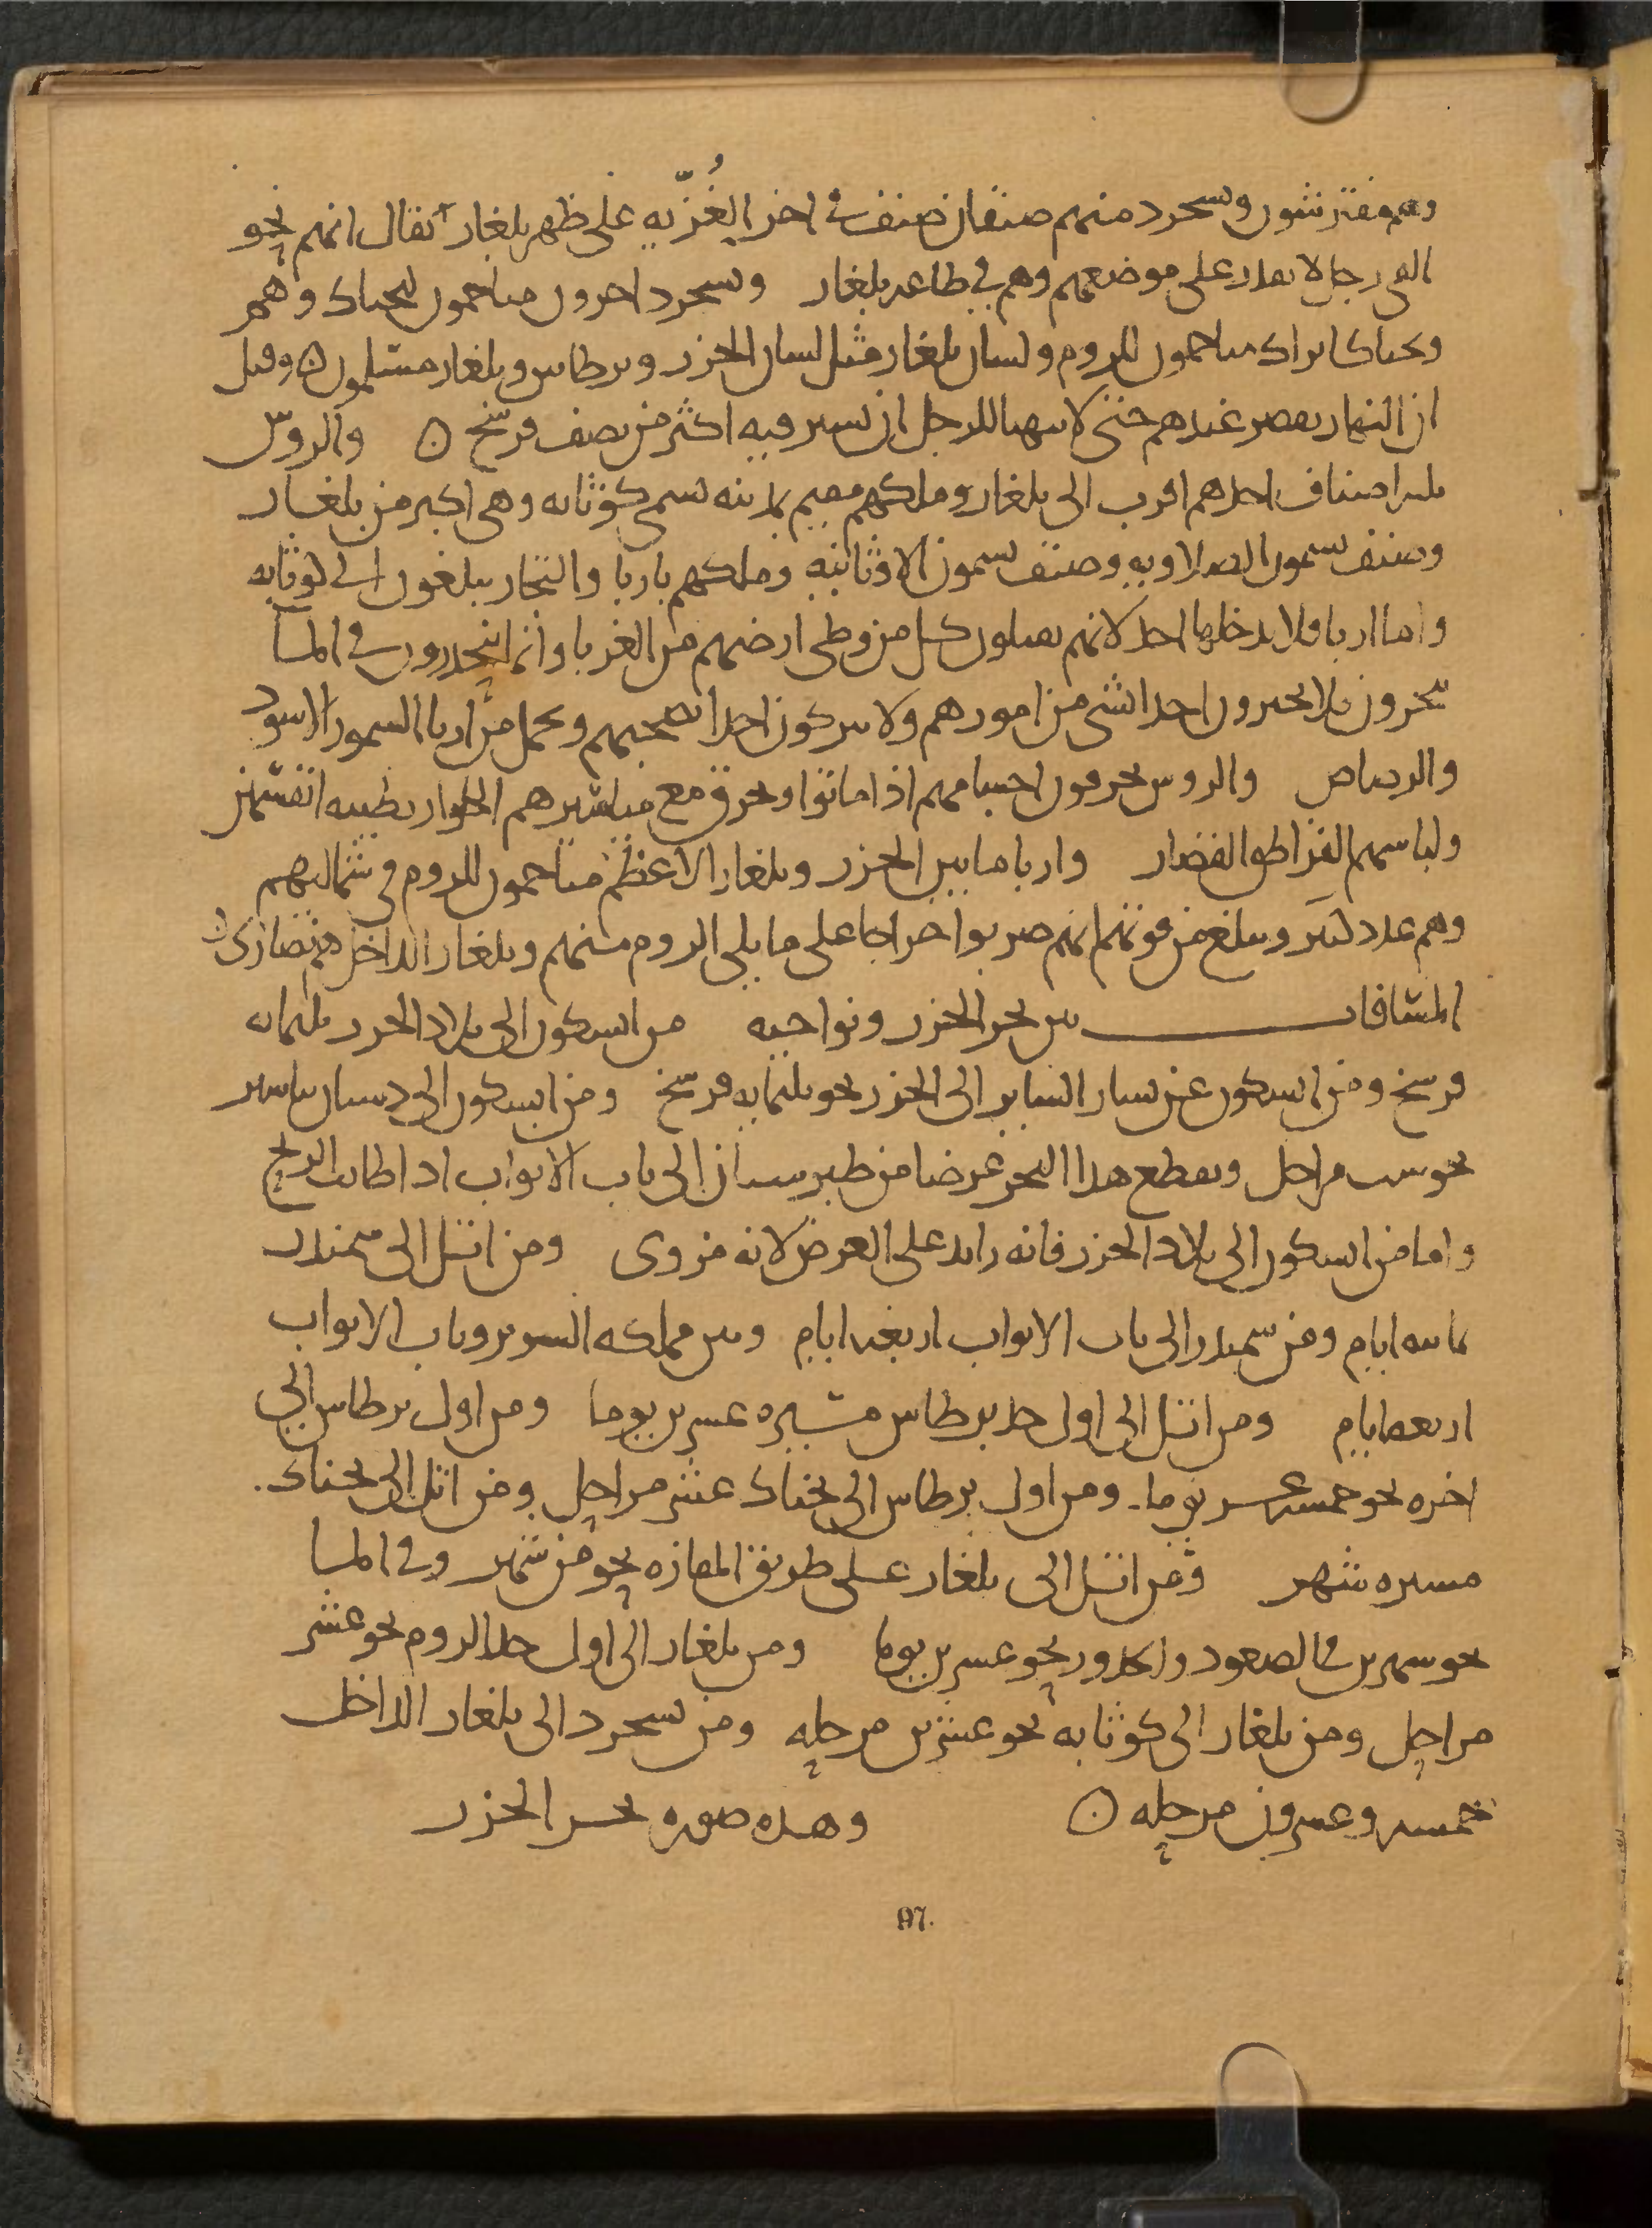 وهم مفترشون وبسجرد منهم صنفان صنف في اخر الغُزّيه على ظهر بلغار يقال انهم نحو
الفي رجل لا يقدر على موضعهم وهم في طاعه بلغار وبسجرد اخرون متاخمون لبجناك وهم
وبجناك اتراك متاخمون للروم ولسان بلغار مثل لسان الخزر وبرطاس وبلغار مسلمون ۞ وقيل
ان النهار يقصر عندهم حتى لا يتهيا للرجل ان يسير فيه اكثر من نصف فرسخ ۞ والروس
ثلثه اصناف احدهم اقرب الى بلغار وملكهم مقيم بمدينه تسمى كوثابه وهي اكبر من بلغار
وصنف يسمون الصلاويه وصنف يسمون الاوثانيه وملكهم باربا والتجار يبلغون الى كوثابه
واما اربا فلا يدخلها احد لانهم يقتلون كل من وطى ارضهم من الغربا وانما ينحدرون في الما
يتجرون فلا يخبرون احدا بشي من امورهم ولا يتركون احدا يصحبهم ويحمل من اربا السمور الاسود
والرصاص والروس يحرقون اجسامهم اذا ماتوا وتحرق مع مياسيرهم الجوار بطيبه انفسهن
ولباسهم القراطق القصار واربا ما بين الخزر وبلغار الاعظم متاخمون للروم في شماليهم
وهم عدد كثير ويبلغ من قوتهم انهم ضربوا خراجا على ما يلي الروم منهم وبلغار الداخل هم نصارى ۞
المسافات بين بحر الخزر ونواحيه من ابسكون الى بلاد الخزر ثلثمايه
فرسخ ومن ابسكون عن يسار الساير الى الخزر نحو ثلثمايه فرسخ ومن ابسكون الى دهستان مياسير
نحو ست مراحل ويقطع هذا البحر عرضا من طبرستان الى باب الابواب اذا طابت الريح
واما من ابسكون الى بلاد الخزر فانه زايد على العرض لانه مزوى ومن اتل الى سمندر
ثمانيه ايام ومن سمندر الى باب الابواب اربعه ايام وبين مملكه السرير وباب الابواب
اربعه ايام ومن اتل الى اول حد برطاس مسيره عشرين يوما ومن اول برطاس الى
اخره نحو خمسه عشر يوما ومن اول برطاس الى بجناك عشر مراحل ومن اتل الى بجناك
مسيره شهر ومن اتل الى بلغار على طريق المفازه نحو من شهر وفي الما
نحو شهرين في الصعود والحدور نحو عشرين يوما ومن بلغار الى اول حد الروم نحو عشر
مراحل ومن بلغار الى كوثابه نحو عشرين مرحله ومن بسجرد الى بلغار الداخل
خمسه وعشرون مرحله ۞ وهذه صوره بحر الخزر
97.